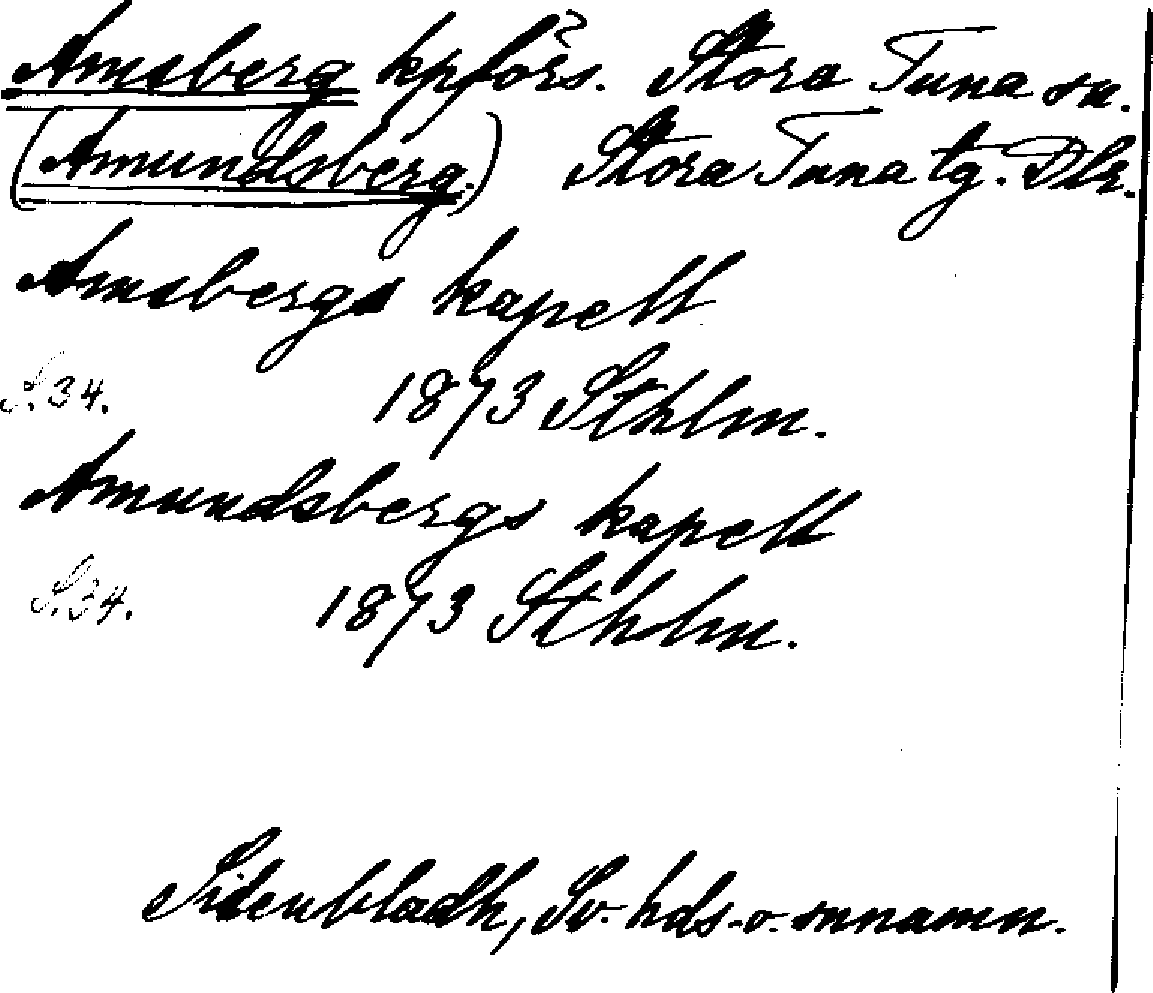 Amsberg kpförs. Stora Tuna sn.
(Amundsberg.) Stora Tuna tg. Dlr.
Amsbergs kapell
S. 34. 1873 Sthlm.
Amundsbergs kapell
S. 34. 1873 Sthlm.
Sidenbladh, Sv. hds- o. snnamn.